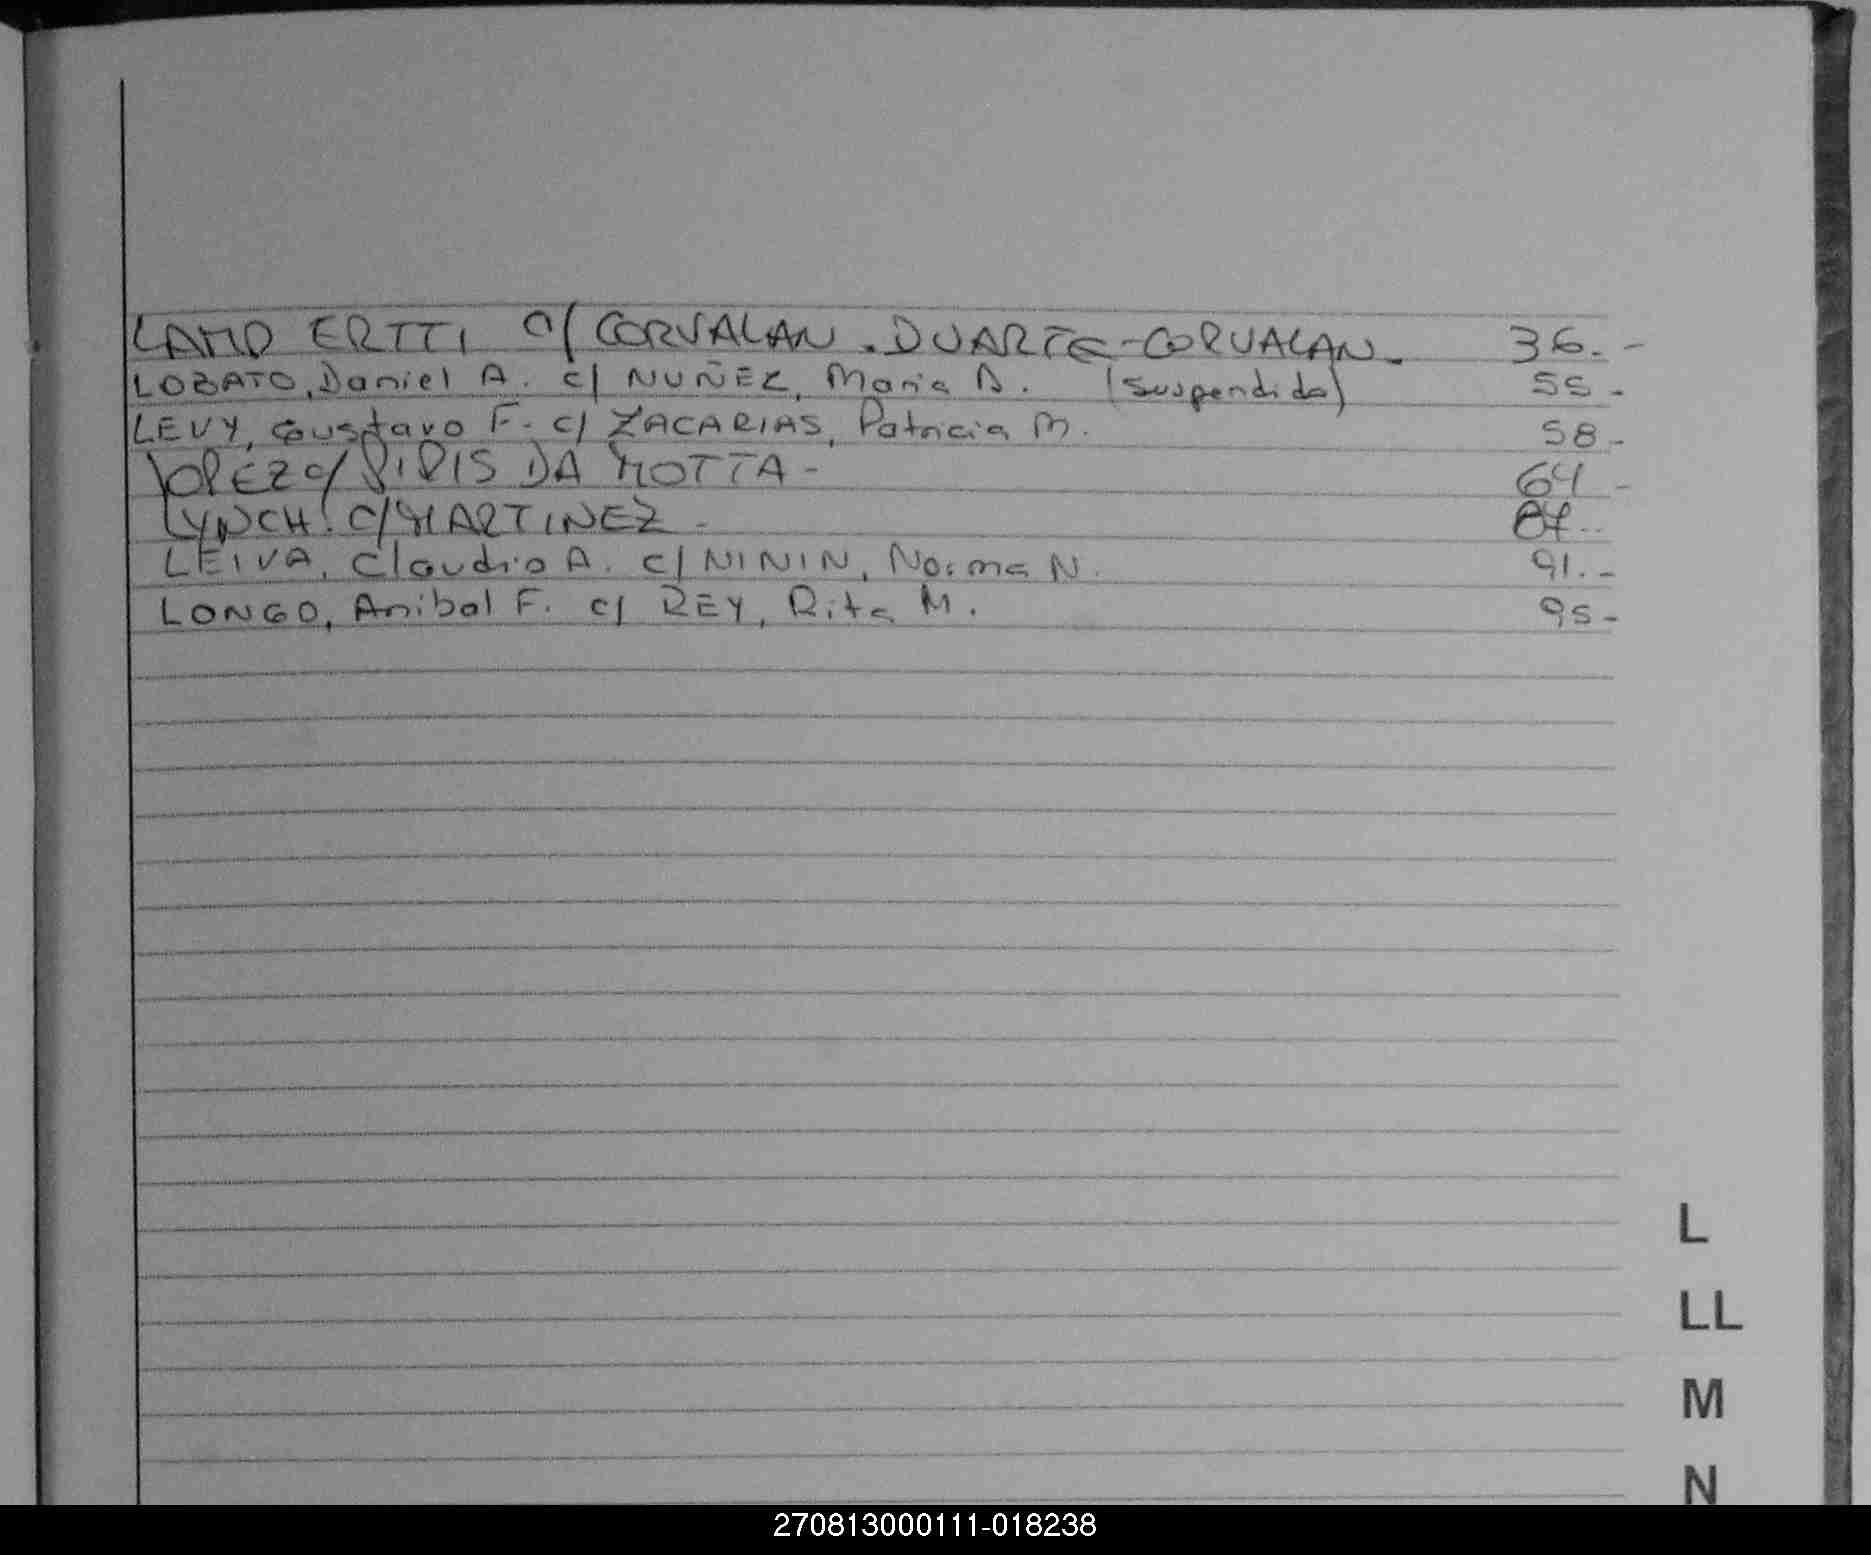 LAMBERTTI c/ CORVALAN. DUARTE-CORVALAN. 36.-
LOBATO, Daniel A. c/ NUÑEZ, Maria D. (Suspendida) 55-
LEVY, Gustavo F. c/ ZACARIAS, Patricia M. 58-
LOPEZ c/ PIRIS DA MOTTA- 64-
LYNCH. c/ MARTINEZ- 87.-
LEIVA, Claudio A. c/ NININ, Norma N. 91.-
LONGO, Anibal F. c/ REY, Rita M. 95-
L
LL
M
N
270813000111-018238